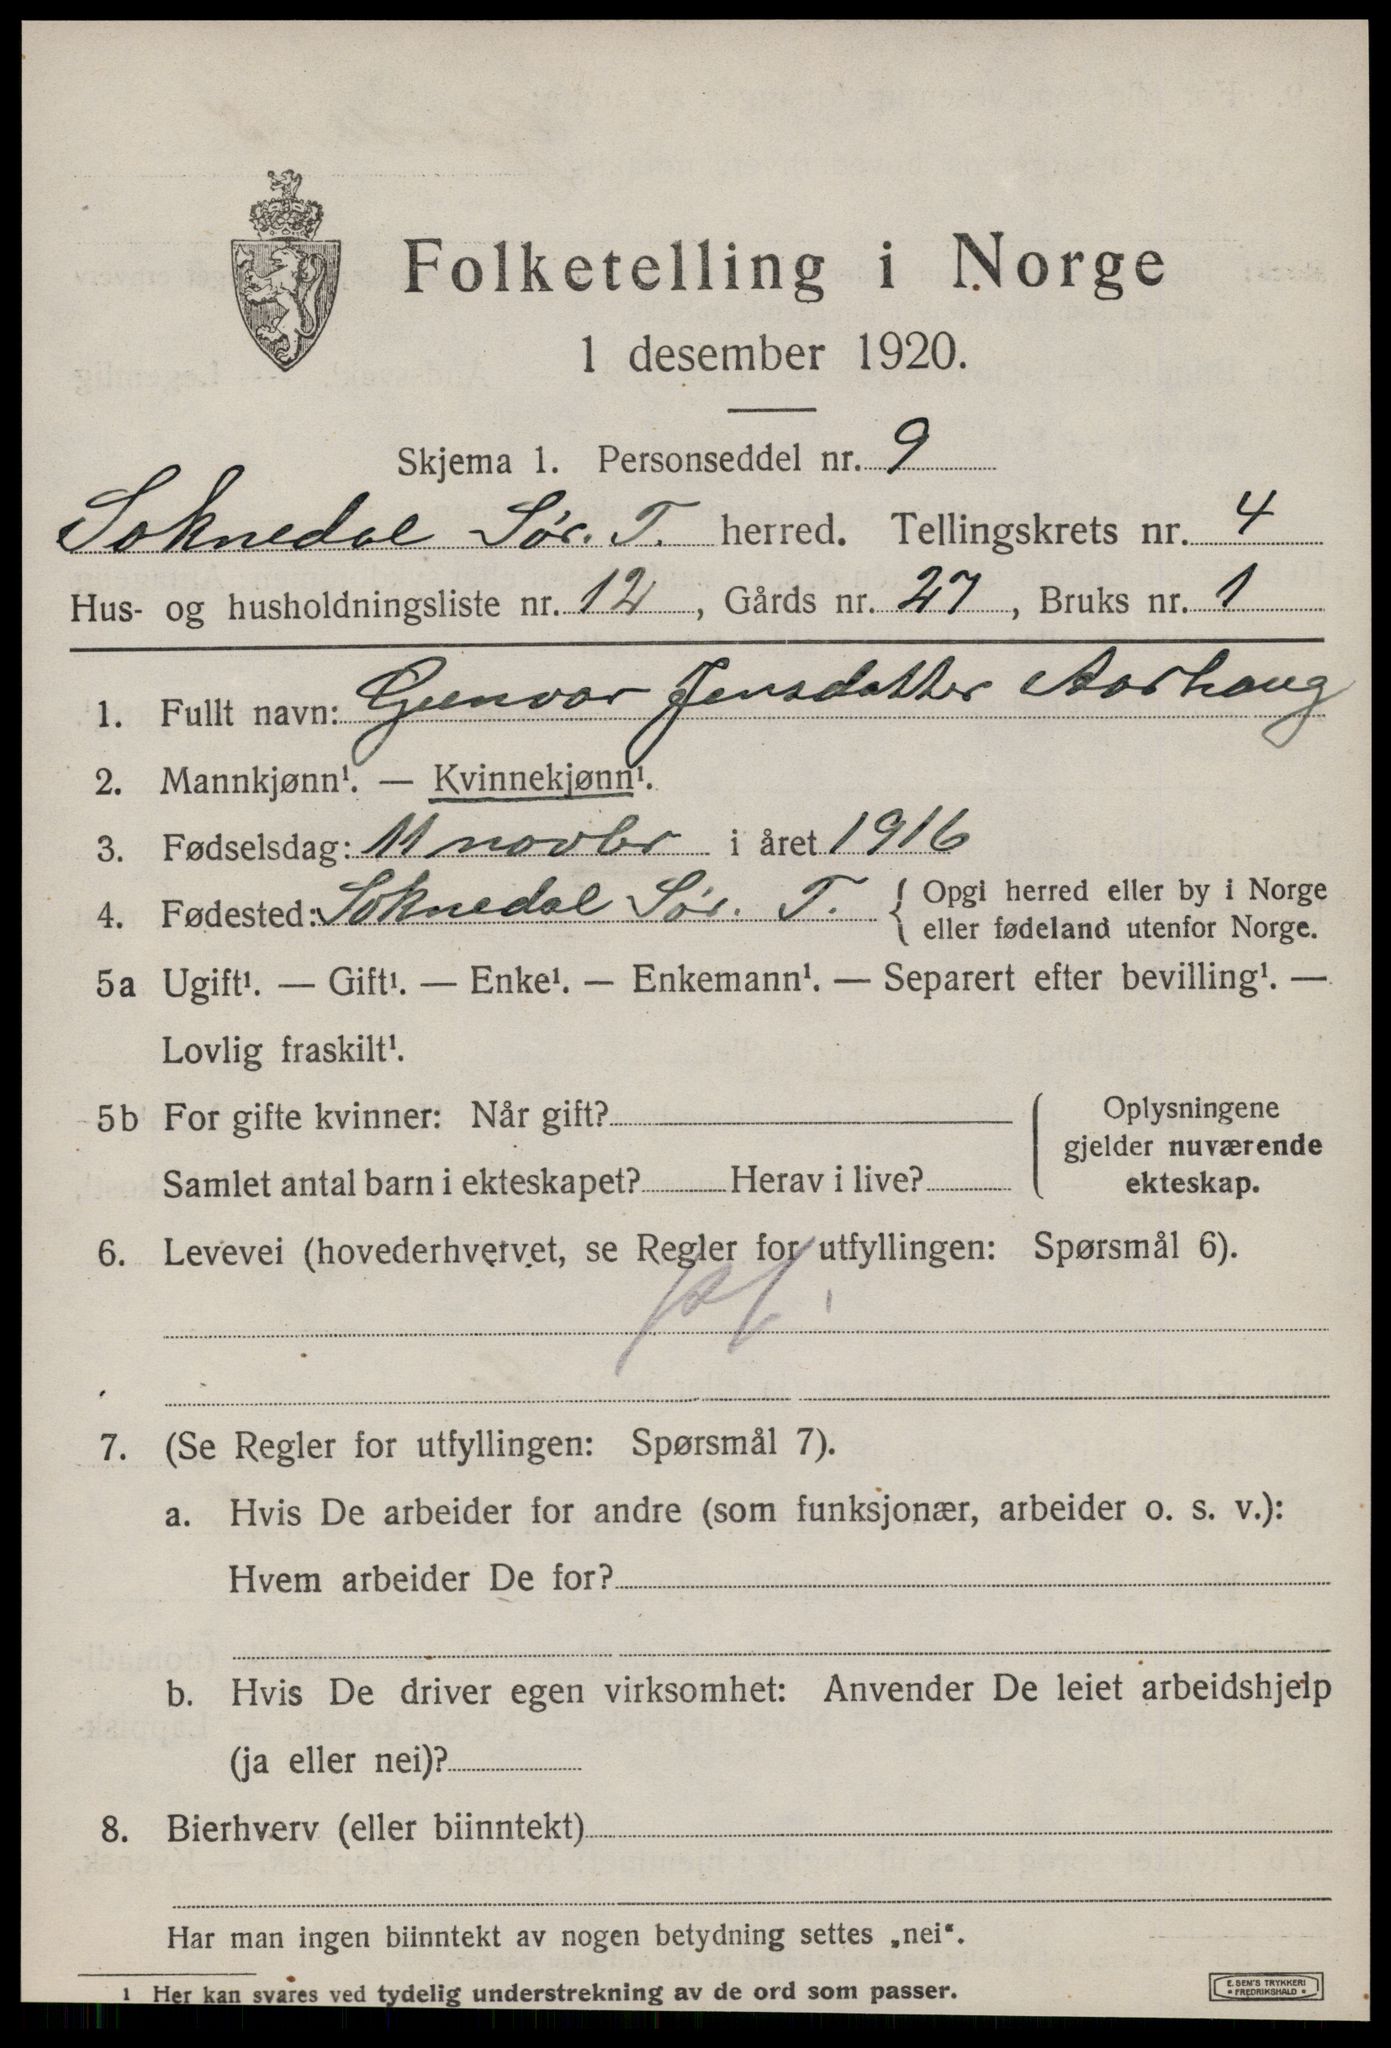 Folketelling i Norge
1 desember 1920.
Skjema 1. Personseddel nr. 9
Soknedal Sør. T. herred. Tellingskrets nr. 4
Hus- og husholdningsliste nr. 12, Gårds nr. 27, Bruks nr. 1
1. Fullt navn: Gunvor Jensdatter Aarhaug
2. Mannkjønn¹. — Kvinnekjønn¹.
3. Fødselsdag: 11 novbr i året 1916
4. Fødested: Soknedal Sør. T. { Opgi herred eller by i Norge
eller fødeland utenfor Norge.
5a Ugift¹. — Gift¹. — Enke¹. — Enkemann¹. — Separert efter bevilling¹. —
Lovlig fraskilt¹.
5b For gifte kvinner: Når gift? Oplysningene
gjelder nuværende
Samlet antal barn i ekteskapet? Herav i live? ekteskap.
6. Levevei (hovederhvervet, se Regler for utfyllingen: Spørsmål 6).
7. (Se Regler for utfyllingen: Spørsmål 7).
a. Hvis De arbeider for andre (som funksjonær, arbeider o. s. v.):
Hvem arbeider De for?
b. Hvis De driver egen virksomhet: Anvender De leiet arbeidshjelp
(ja eller nei)?
8. Bierhverv (eller biinntekt)
Har man ingen biinntekt av nogen betydning settes „nei“.
¹ Her kan svares ved tydelig understrekning av de ord som passer.
E. SEM'S TRYKKERI
FREDRIKSHALD